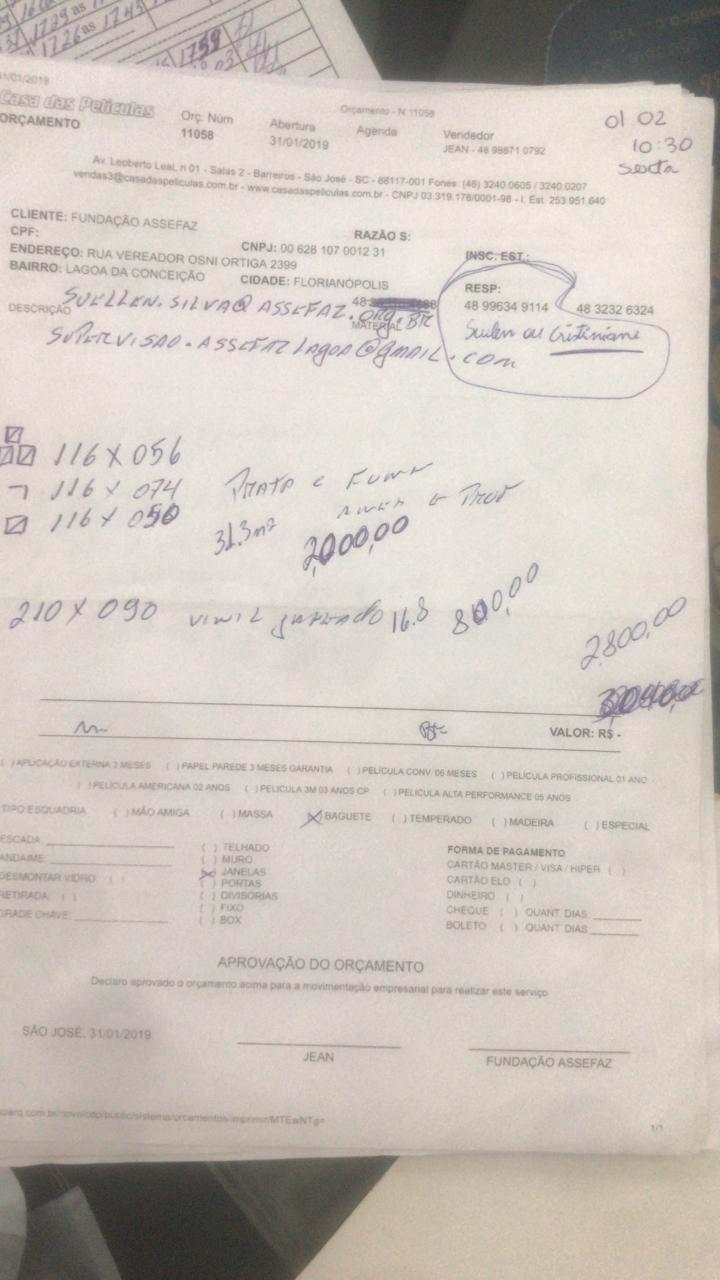 1716 as
1729 as
1726 as 1743
1759
31/01/2019
Orçamento - N 11058
Casa das Películas
ORÇAMENTO
Orç. Núm
11058
Abertura
31/01/2019
Agenda
Vendedor
JEAN - 48 98871 0792
01 02
10:30
Sexta
Av. Leoberto Leal, n 01 - Salas 2 - Barreiros - São José - SC - 88117-001 Fones: (48) 3240.0605 / 3240.0207
vendas3@casadaspeliculas.com.br - www.casadaspeliculas.com.br - CNPJ 03.319.178/0001-98 - I. Est: 253.951.640
CLIENTE: FUNDAÇÃO ASSEFAZ
CPF:
CNPJ: 00 628 107 0012 31
RAZÃO S:
INSC. EST.:
ENDEREÇO: RUA VEREADOR OSNI ORTIGA 2399
BAIRRO: LAGOA DA CONCEIÇÃO
CIDADE: FLORIANÓPOLIS
RESP:
48 99634 9114
48 3232 6324
48
SUELLEN.SILVA@ASSEFAZ.ORG.BR
DESCRIÇÃO
MATERIAL
Suelen ou Cristiniane
SUPERVISAO.ASSEFAZLAGOA@GMAIL.COM
116 X 056
116 X 074
PRATA E FUME
116 X 050
31.3m²
2000,00
210 X 090 VINIL JATEADO 16.8 800,00
2.800,00
VALOR: R$ -
( ) APLICAÇÃO EXTERNA 3 MESES ( ) PAPEL PAREDE 3 MESES GARANTIA ( ) PELÍCULA CONV. 06 MESES ( ) PELÍCULA PROFISSIONAL 01 ANO
( ) PELÍCULA AMERICANA 02 ANOS ( ) PELICULA 3M 03 ANOS CP ( ) PELICULA ALTA PERFORMANCE 05 ANOS
TIPO ESQUADRIA ( ) MÃO AMIGA ( ) MASSA (X) BAGUETE ( ) TEMPERADO ( ) MADEIRA ( ) ESPECIAL
ESCADA
ANDAIME
DESMONTAR VIDRO ( )
RETIRADA: ( )
GRADE CHAVE:
( ) TELHADO
( ) MURO
(X) JANELAS
( ) PORTAS
( ) DIVISÓRIAS
( ) FIXO
( ) BOX
FORMA DE PAGAMENTO
CARTÃO MASTER / VISA / HIPER ( )
CARTÃO ELO ( )
DINHEIRO ( )
CHEQUE ( ) QUANT DIAS
BOLETO ( ) QUANT DIAS
APROVAÇÃO DO ORÇAMENTO
Declaro aprovado o orçamento acima para a movimentação empresarial para realizar este serviço
SÃO JOSÉ, 31/01/2019
JEAN
FUNDAÇÃO ASSEFAZ
1/1